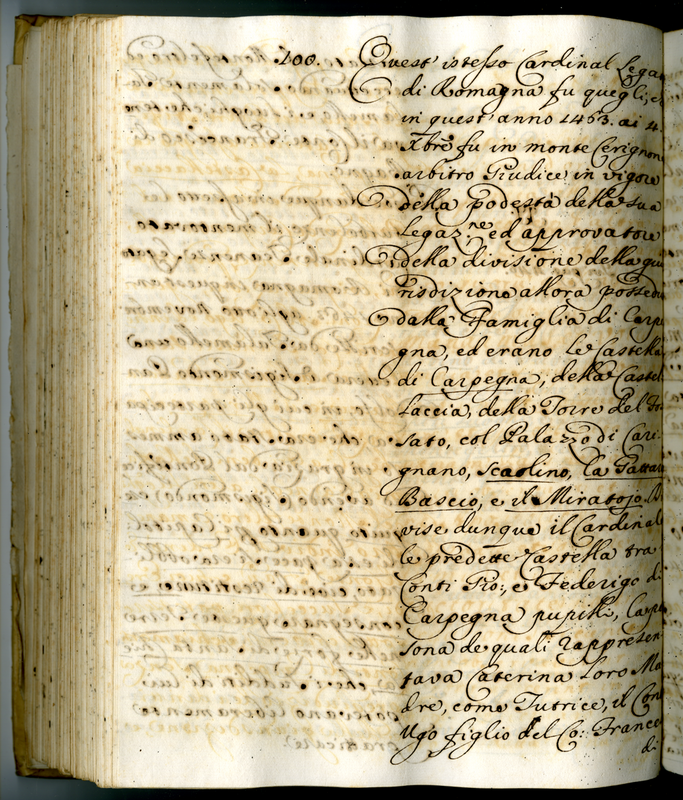 100. Quest' istesso Cardinal Legat
di Romagna fu quegli, c
in quest' anno 1463. ai 4.
Xbre fu in monte Cerignon
arbitro Giudice in vigore
della podestà della sua
Legaz.ne ed approvatore
della divisione della giu
risdizione allora possedu
dalla Famiglia di Carpe
gna, ed erano le Castella
di Carpegna, della Castel
laccia, della Torre del Fo
sato, col Palazzo di Cari
gnano, Scaolino, la Gattara
Bascio, e il Miratojo. Di
vise dunque il Cardinal
le predette Castella tra
Conti Gio:, e Federigo di
Carpegna pupilli, la per
sona de quali rappresen
tava Caterina loro Ma
dre, come Tutrice, il Con
Ugo figlio del Co: France
di